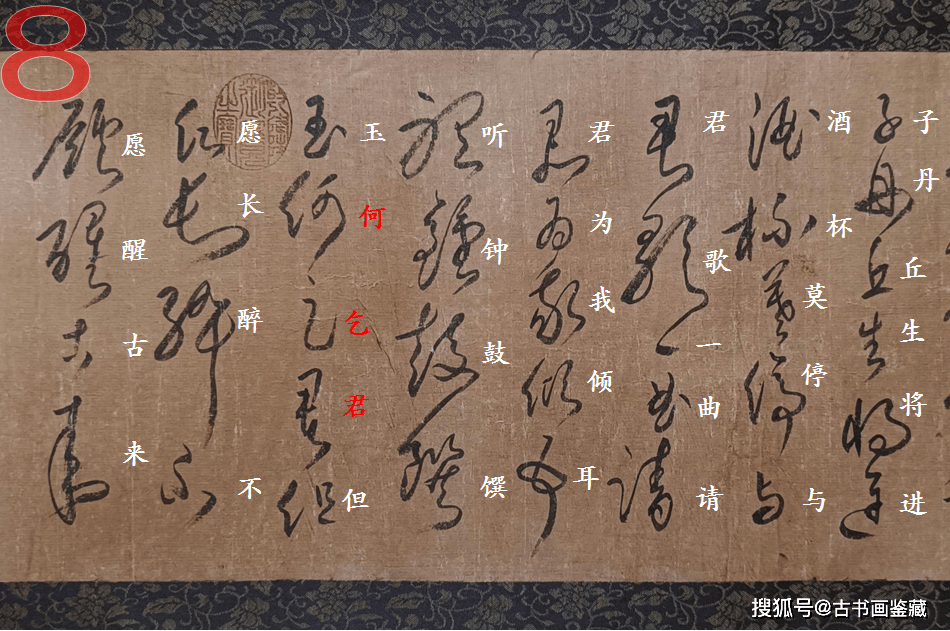 8
子丹丘生将进
酒杯莫停与
君歌一曲请
君为我倾耳
听钟鼓馔
玉何乞君但
愿长醉不
愿醒古来
搜狐号@古书画鉴藏